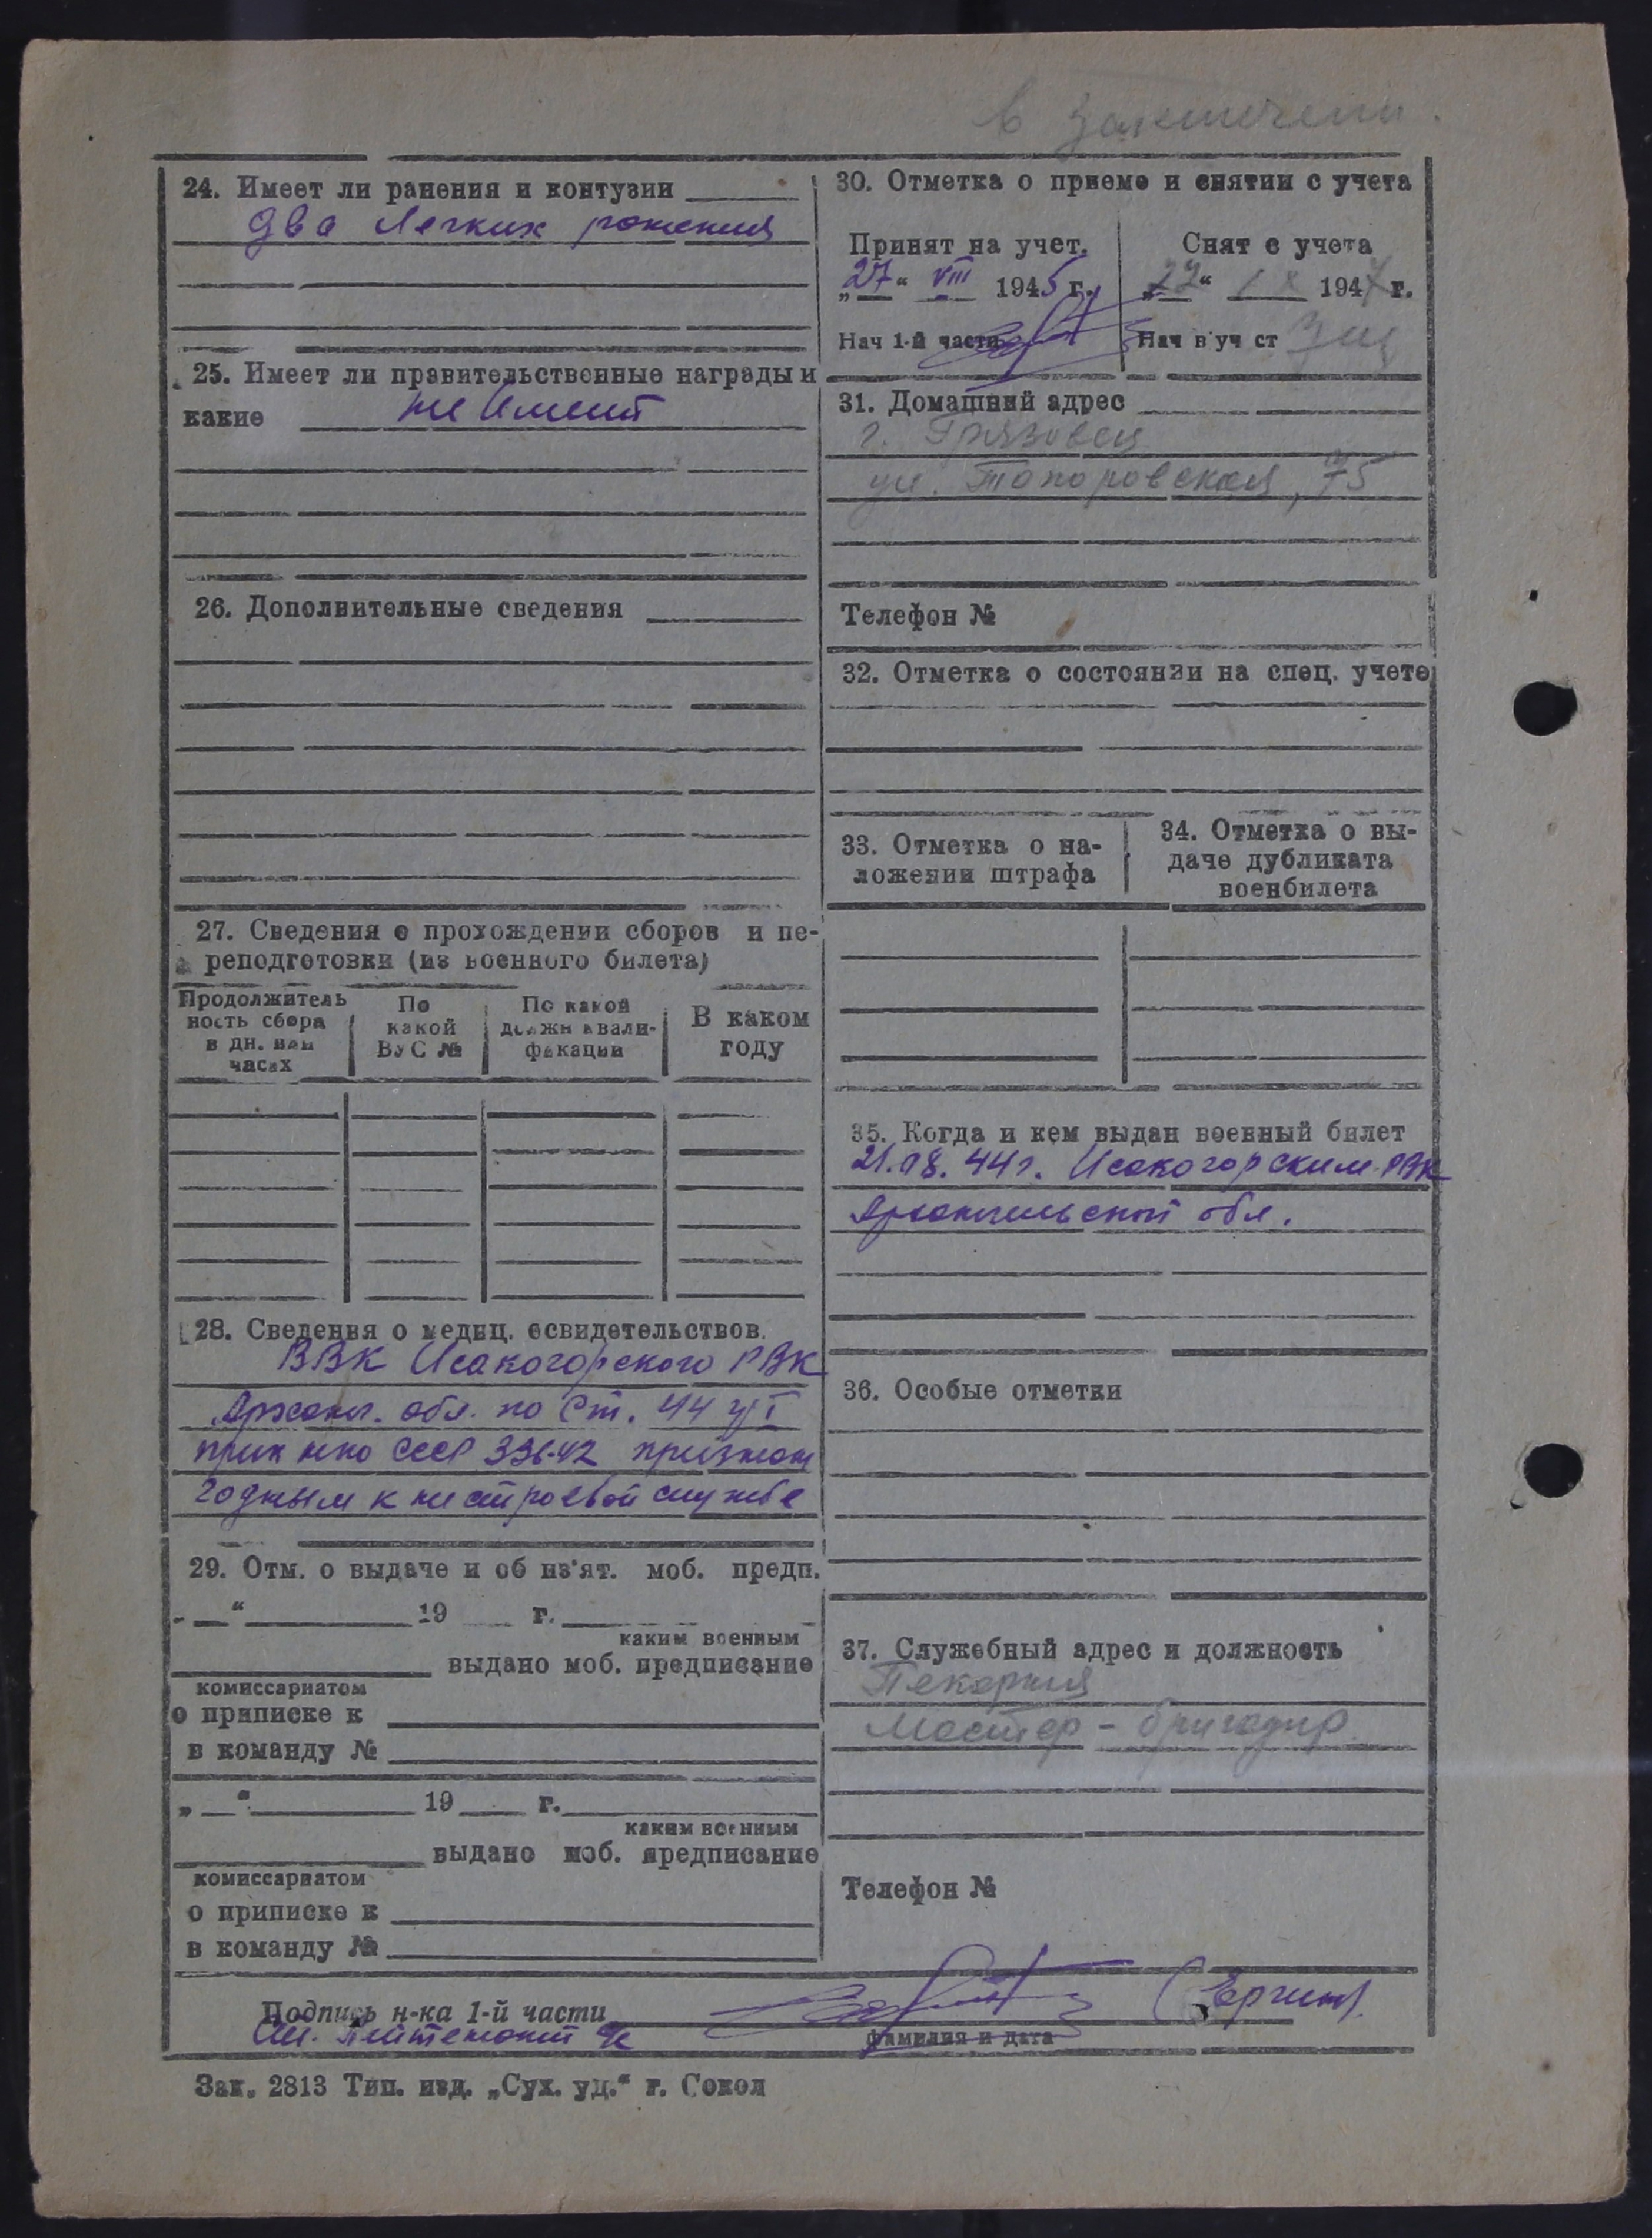 в заключени.
24. Имеет ли ранения и контузии
два легких ранения
25. Имеет ли правительственные награды и
какие не имеет
26. Дополнительные сведения
27. Сведения о прохождении сборов и пе-
реподготовки (из военного билета)
Продолжитель
ность сбора
в дн. или
часах
По
какой
ВУС №
По какой
должн квали-
фикации
В каком
году
28. Сведения о медиц. освидетельствов.
ВВК Исакогорского РВК
Арханг. обл. по Ст. 44 гр I
прик нко СССР 336-42 признан
годным к нестроевой службе
29. Отм. о выдаче и об из'ят. моб. предп.
„ “ 19 г.
каким военным
выдано моб. предписание
комиссариатом
о приписке к
в команду №
„ “ 19 г.
каким военным
выдано моб. предписание
комиссариатом
о приписке к
в команду №
30. Отметка о приеме и снятии с учета
Принят на учет.
„27“ VIII 1945 г.
Нач 1-й части
Снят с учета
„22“ IX 1947 г.
Нач в уч ст
31. Домашний адрес
г. Грязовец
ул. Топоровская, 75
Телефон №
32. Отметка о состоянии на спец. учете
33. Отметка о на-
ложении штрафа
34. Отметка о вы-
даче дубликата
военбилета
35. Когда и кем выдан военный билет
21.08.44г. Исакогорским РВК
Архангельской обл.
36. Особые отметки
37. Служебный адрес и должность
Пекарня
Мастер - бригадир
Телефон №
Подпись н-ка 1-й части
Ст. Лейтенант
фамилия и дата
Зак. 2813 Тип. изд. „Сух. уд.“ г. Сокол